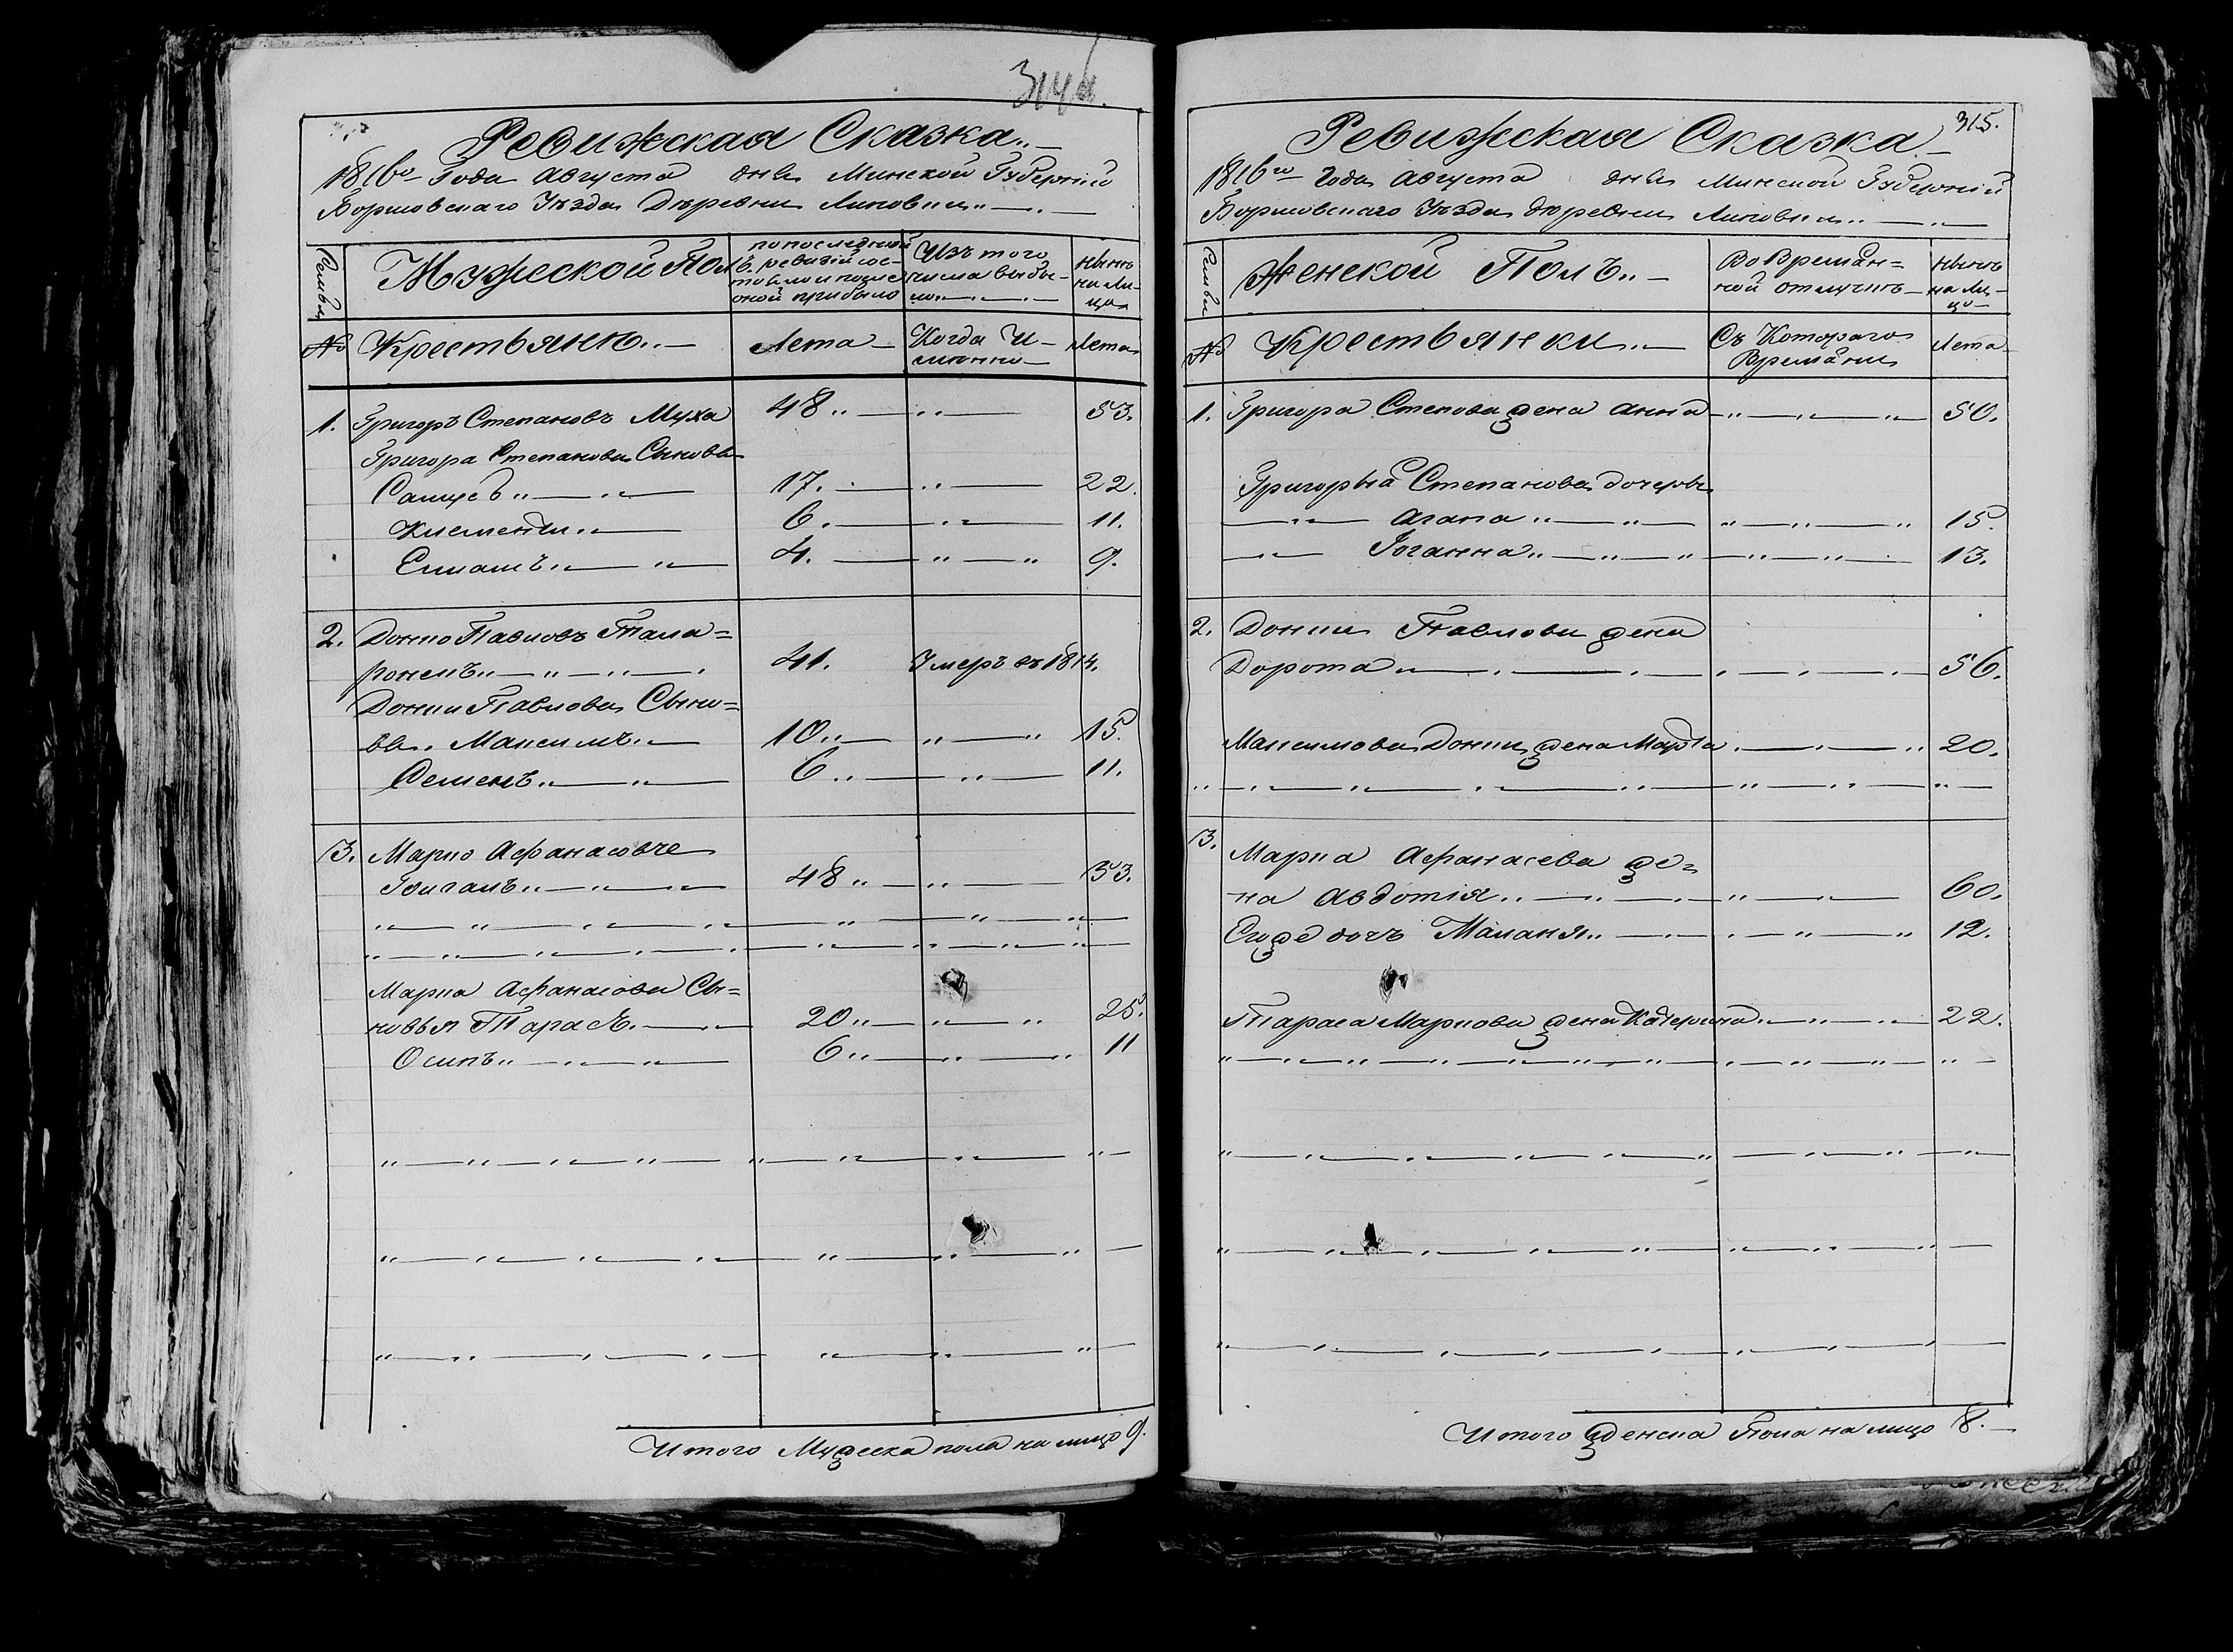 314 об.
Ревижская Сказка
1816го Года Августа дня Минской Губерніи
Борисовскаго Уезда Деревни Липовки
Семьи
Мужеской Пол
по последней
ревизіи сос-
тояло и после
оной прибыло
Изъ того
числа выбы-
ло
ныне
на ли-
цо
№
Крестьяне
Лета
Когда И-
манно
Лета
1. Григоръ Степановъ Муха 48 53.
Григора Степанова Сыновья
17. 22.
Клементи 6. 11.
4. 9.
2. Павловъ
41. Умеръ въ 1814.
Павлова Сыно-
вья Максимъ 10 15.
Семенъ 6 11.
3. Марко
48 53.
Марка Афанасова Сы-
новья Тарасъ 20 25.
Осипъ 6 11
Итого Мужеска пола на лицо 9.
315.
Ревижская Сказка
1816го Года Августа дня Минской Губерніи
Борисовскаго Уезда деревни Липовки
Семьи
Женской Полъ
Во Времян-
ной отлучке
ныне
на ли-
цо
№
Крестьянки
Съ Котораго
Времяни
Лета
1. Григора Степова жена анна 50.
Степанова дочеры
Агапа 15.
Іоганна 13.
2. Павлова жена
Дорота 56.
Максимова жена Марта 20.
3. Марка Афанасева же-
на Авдотія 60.
Егоже дочь Маланя 12.
Тараса Маркова жена Катерина 22.
Итого женска Пола на лицо 8.